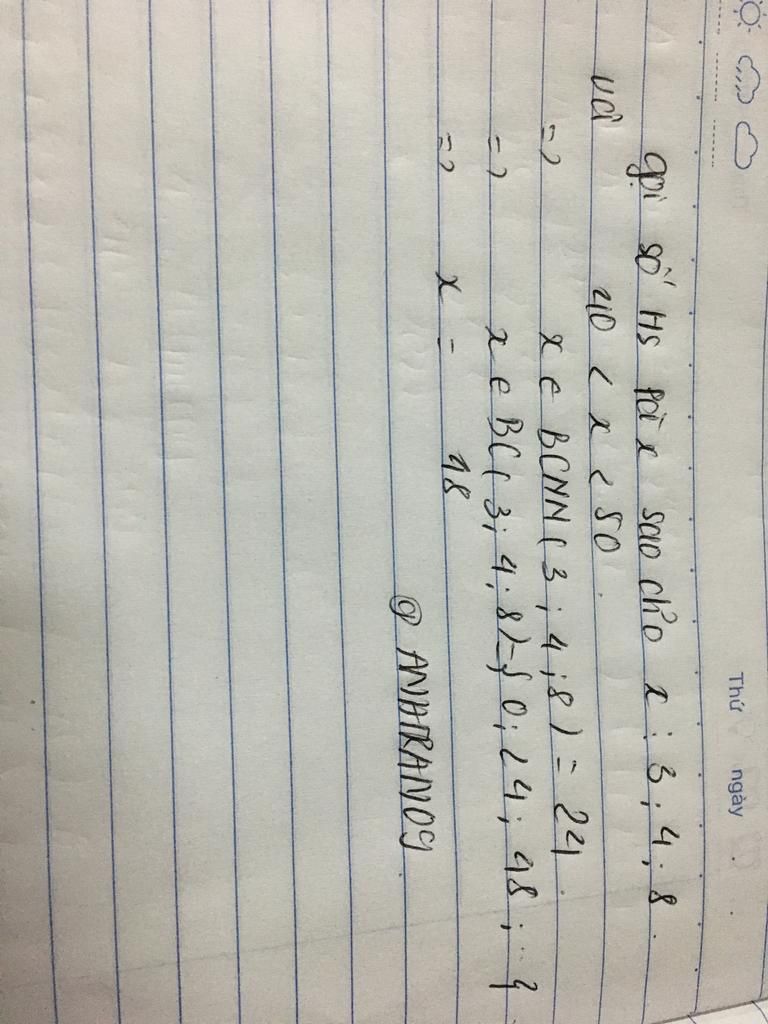 Thứ ngày
gọi số HS là x sao cho x ⋮ 3 ; 4 ; 8 .
và 40 < x < 50 .
=> x ∈ BCNN ( 3 ; 4 ; 8 ) = 24 .
=> x ∈ BC ( 3 ; 4 ; 8 ) = { 0 ; 24 ; 48 ; ... }
=> x = 48
@ ANHTRAN09